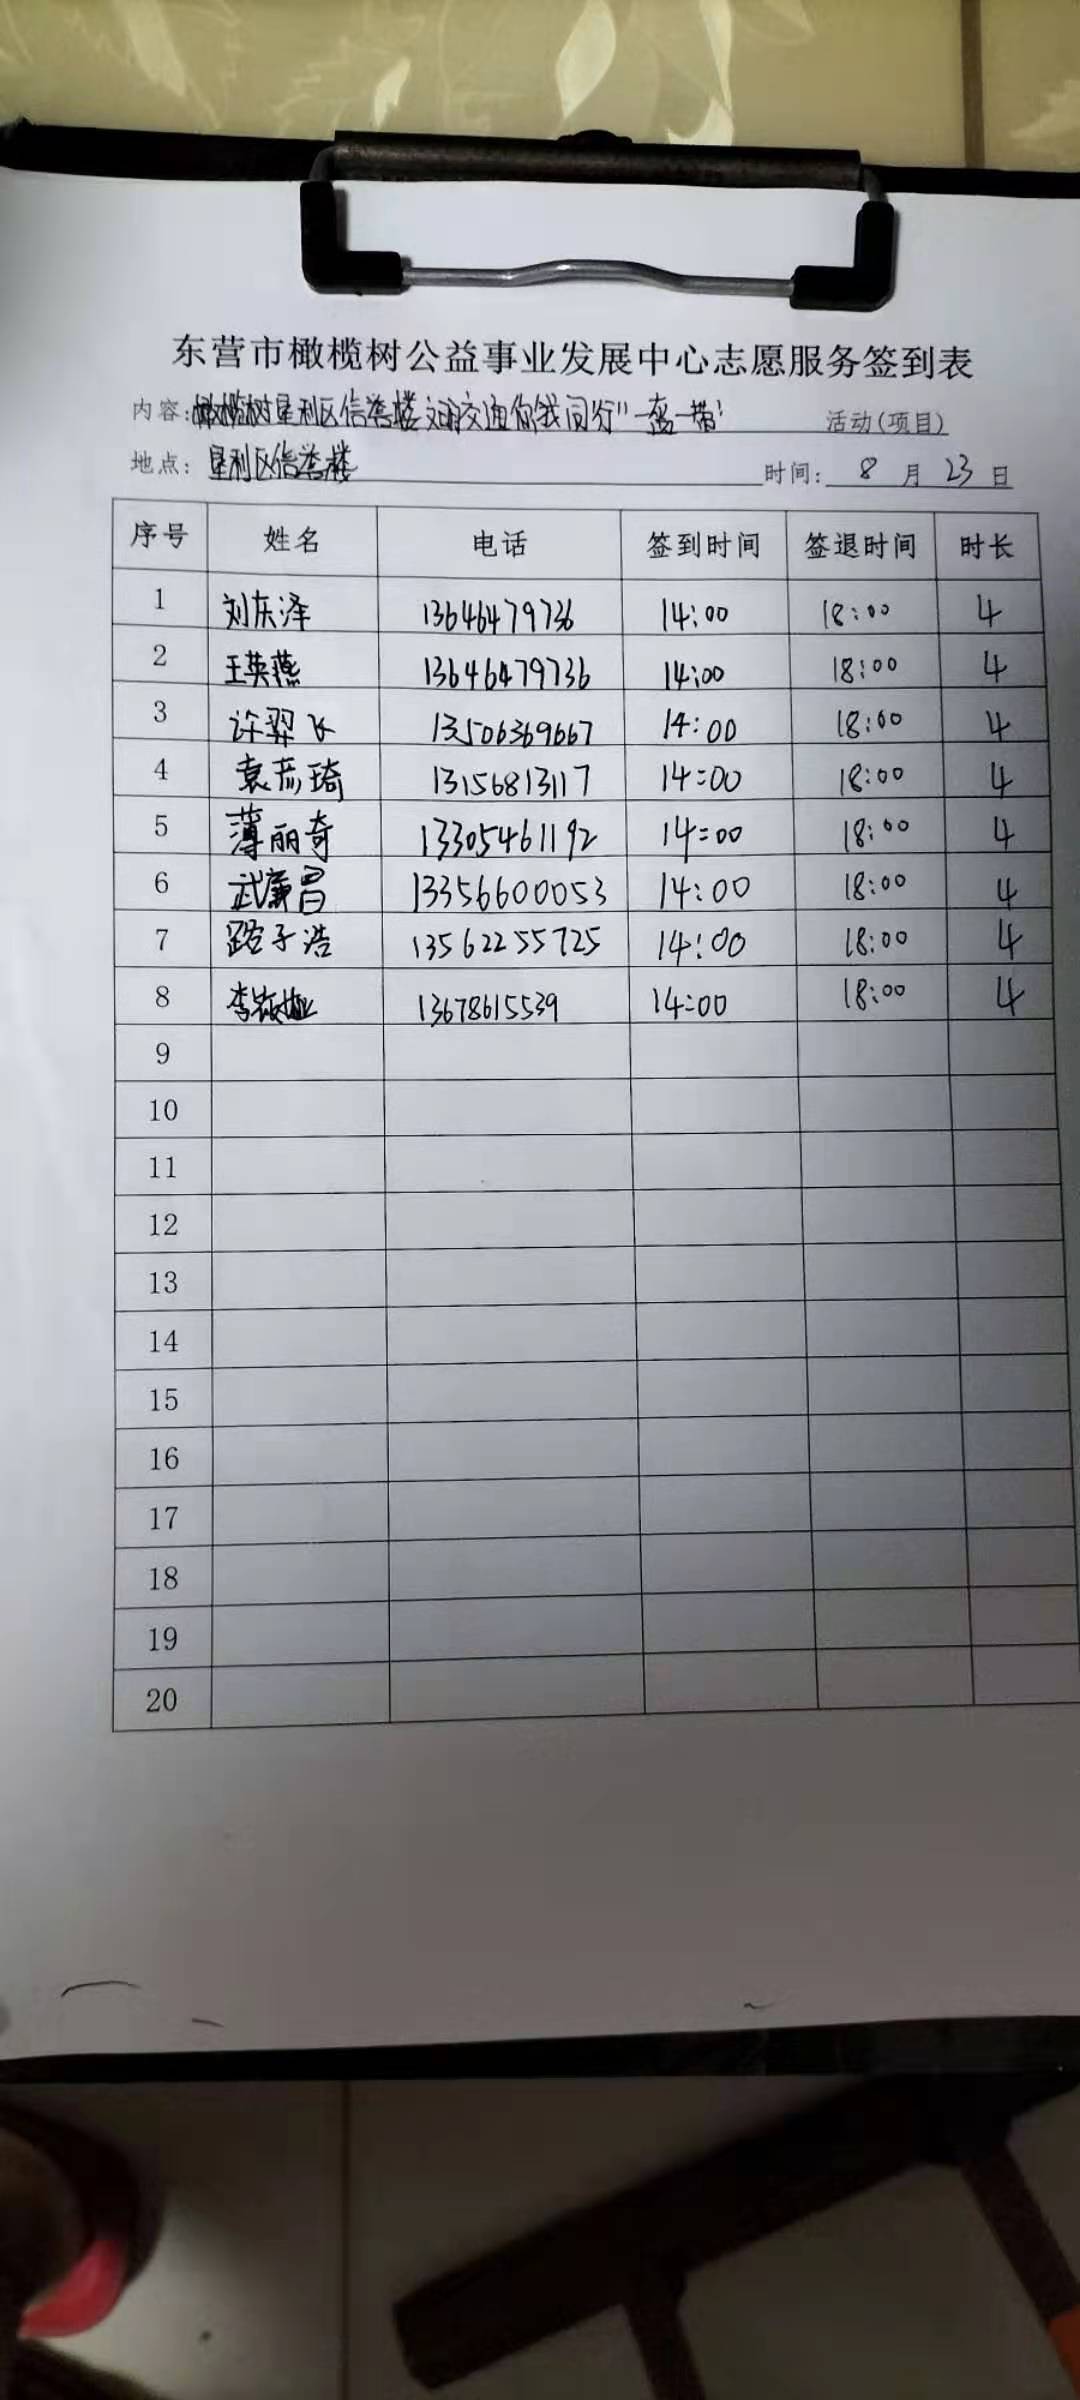 东营市橄榄树公益事业发展中心志愿服务签到表
内容:橄榄树垦利区信誉楼文明交通你我同行"一盔一带" 活动(项目)
地点:垦利区信誉楼 时间: 8 月 23 日
序号 姓名 电话 签到时间 签退时间 时长
1 刘东泽 13646479736 14:00 18:00 4
2 王英燕 13646479736 14:00 18:00 4
3 许翠飞 13506369667 14:00 18:00 4
4 袁彦琦 13156813117 14:00 18:00 4
5 薄丽奇 13305461192 14:00 18:00 4
6 武廉昌 13356600053 14:00 18:00 4
7 路子浩 13562255725 14:00 18:00 4
8 李 13678615539 14:00 18:00 4
9
10
11
12
13
14
15
16
17
18
19
20